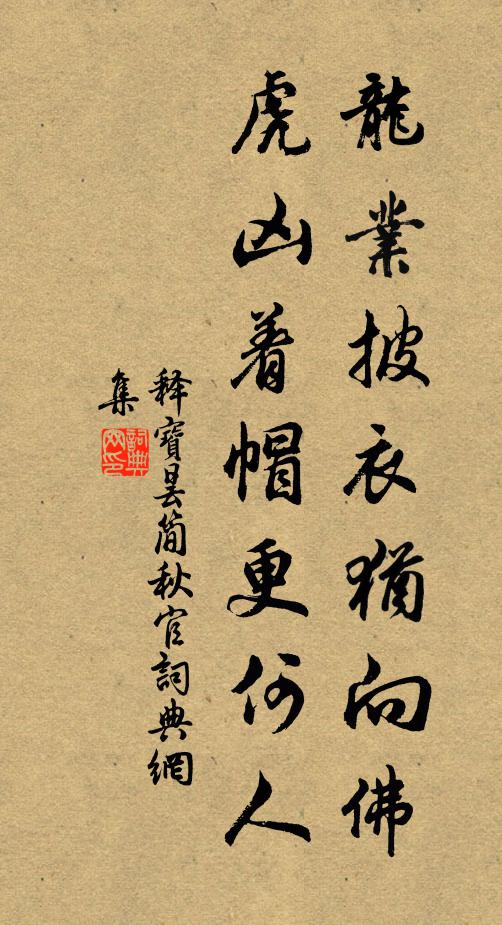 龍業披衣猶向佛
虎凶着帽更何人
释寶曇簡秋官詞典網
集
詞典網印